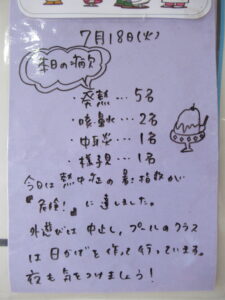 7月18日(火)
本日の病欠
・発熱…5名
・咳鼻水…2名
・中耳炎…1名
・様子見…1名
今日は熱中症の暑さ指数が
『危険!』に達しました。
外遊びは中止し、プールのクラス
は日かげを作って行っています。
夜も気をつけましょう!